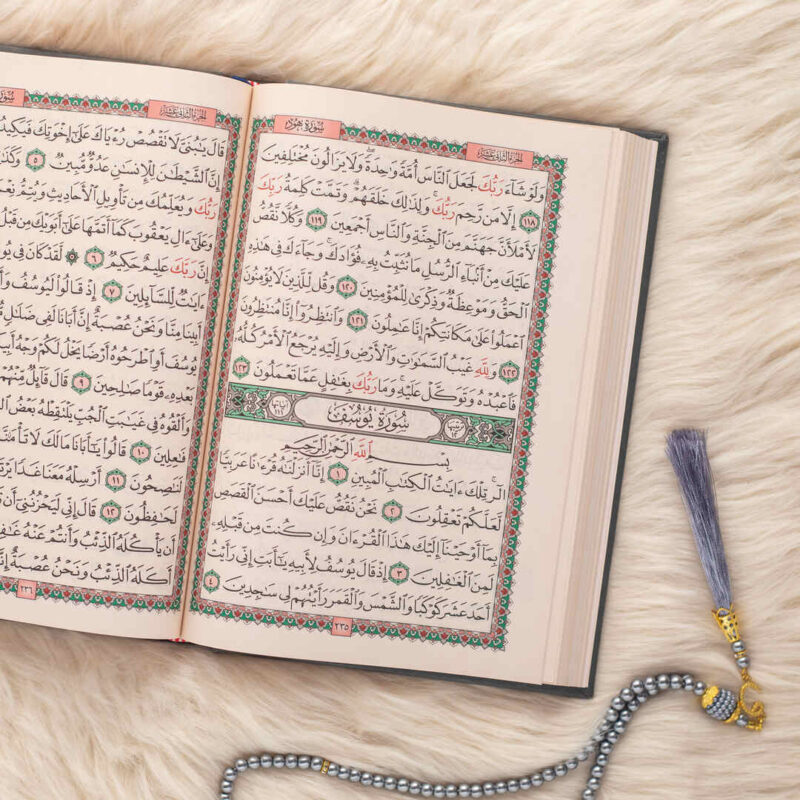 الجزء الثاني عشر سُورَةُ هُود
وَلَوْ شَآءَ رَبُّكَ لَجَعَلَ ٱلنَّاسَ أُمَّةً وَٰحِدَةً ۖ وَلَا يَزَالُونَ مُخْتَلِفِينَ
١١٨ إِلَّا مَن رَّحِمَ رَبُّكَ ۚ وَلِذَٰلِكَ خَلَقَهُمْ ۗ وَتَمَّتْ كَلِمَةُ رَبِّكَ
لَأَمْلَأَنَّ جَهَنَّمَ مِنَ ٱلْجِنَّةِ وَٱلنَّاسِ أَجْمَعِينَ ١١٩ وَكُلًّا نَّقُصُّ
عَلَيْكَ مِنْ أَنۢبَآءِ ٱلرُّسُلِ مَا نُثَبِّتُ بِهِۦ فُؤَادَكَ ۚ وَجَآءَكَ فِى هَٰذِهِ
ٱلْحَقُّ وَمَوْعِظَةٌ وَذِكْرَىٰ لِلْمُؤْمِنِينَ ١٢٠ وَقُل لِّلَّذِينَ لَا يُؤْمِنُونَ
ٱعْمَلُوا۟ عَلَىٰ مَكَانَتِكُمْ إِنَّا عَٰمِلُونَ ١٢١ وَٱنتَظِرُوٓا۟ إِنَّا مُنتَظِرُونَ
١٢٢ وَلِلَّهِ غَيْبُ ٱلسَّمَٰوَٰتِ وَٱلْأَرْضِ وَإِلَيْهِ يُرْجَعُ ٱلْأَمْرُ كُلُّهُۥ
فَٱعْبُدْهُ وَتَوَكَّلْ عَلَيْهِ ۚ وَمَا رَبُّكَ بِغَٰفِلٍ عَمَّا تَعْمَلُونَ ١٢٣
سُورَةُ يُوسُفَ
بِسْمِ ٱللَّهِ ٱلرَّحْمَٰنِ ٱلرَّحِيمِ
الٓر ۚ تِلْكَ ءَايَٰتُ ٱلْكِتَٰبِ ٱلْمُبِينِ ١ إِنَّآ أَنزَلْنَٰهُ قُرْءَٰنًا عَرَبِيًّا
لَّعَلَّكُمْ تَعْقِلُونَ ٢ نَحْنُ نَقُصُّ عَلَيْكَ أَحْسَنَ ٱلْقَصَصِ
بِمَآ أَوْحَيْنَآ إِلَيْكَ هَٰذَا ٱلْقُرْءَانَ وَإِن كُنتَ مِن قَبْلِهِۦ
لَمِنَ ٱلْغَٰفِلِينَ ٣ إِذْ قَالَ يُوسُفُ لِأَبِيهِ يَٰٓأَبَتِ إِنِّى رَأَيْتُ
أَحَدَ عَشَرَ كَوْكَبًا وَٱلشَّمْسَ وَٱلْقَمَرَ رَأَيْتُهُمْ لِى سَٰجِدِينَ ٤
٢٣٥
الجزء الثاني عشر
قَالَ يَٰبُنَىَّ لَا تَقْصُصْ رُءْيَاكَ عَلَىٰٓ إِخْوَتِكَ فَيَكِيدُ
إِنَّ ٱلشَّيْطَٰنَ لِلْإِنسَٰنِ عَدُوٌّ مُّبِينٌ ٥ وَكَذَ
رَبُّكَ وَيُعَلِّمُكَ مِن تَأْوِيلِ ٱلْأَحَادِيثِ وَيُتِمُّ نِعْ
وَعَلَىٰٓ ءَالِ يَعْقُوبَ كَمَآ أَتَمَّهَا عَلَىٰٓ أَبَوَيْكَ مِن قَبْلُ
إِنَّ رَبَّكَ عَلِيمٌ حَكِيمٌ ٦ لَّقَدْ كَانَ فِى يُو
ءَايَٰتٌ لِّلسَّآئِلِينَ ٧ إِذْ قَالُوا۟ لَيُوسُفُ وَأَ
أَبِينَا مِنَّا وَنَحْنُ عُصْبَةٌ إِنَّ أَبَانَا لَفِى ضَلَٰلٍ
يُوسُفَ أَوِ ٱطْرَحُوهُ أَرْضًا يَخْلُ لَكُمْ وَجْهُ أَبِي
بَعْدِهِۦ قَوْمًا صَٰلِحِينَ ٩ قَالَ قَآئِلٌ مِّنْهُمْ
وَأَلْقُوهُ فِى غَيَٰبَتِ ٱلْجُبِّ يَلْتَقِطْهُ بَعْضُ ٱل
فَٰعِلِينَ ١٠ قَالُوا۟ يَٰٓأَبَانَا مَا لَكَ لَا تَأْمَ۫نَّا
لَنَٰصِحُونَ ١١ أَرْسِلْهُ مَعَنَا غَدًا يَرْتَ
لَحَٰفِظُونَ ١٢ قَالَ إِنِّى لَيَحْزُنُنِىٓ أَن
أَن يَأْكُلَهُ ٱلذِّئْبُ وَأَنتُمْ عَنْهُ غَٰفِ
أَكَلَهُ ٱلذِّئْبُ وَنَحْنُ عُصْبَةٌ إِنَّ
٢٣٦